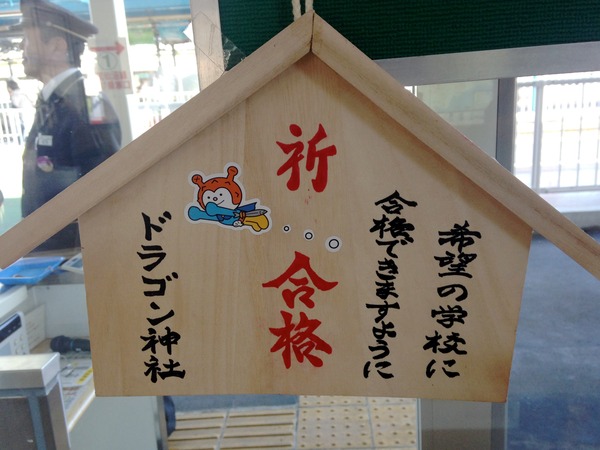 希望の学校に
合格できますように
祈
合格
ドラゴン神社